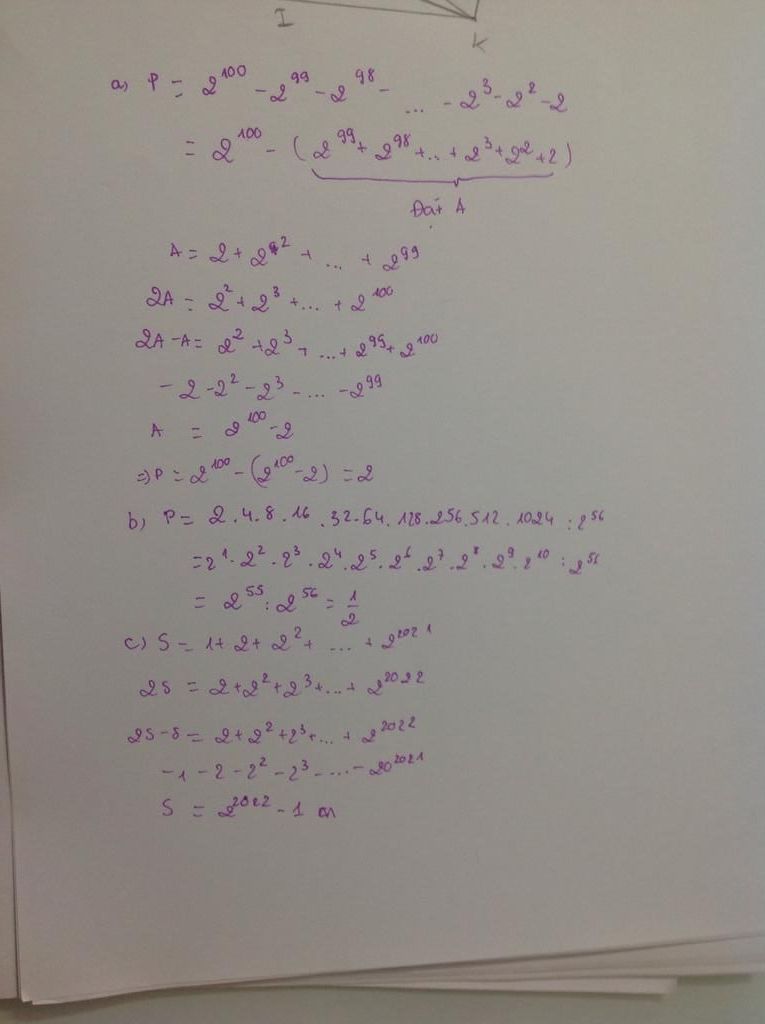 I
K
a) P = 2^100 - 2^99 - 2^98 - ... - 2^3 - 2^2 - 2
= 2^100 - (2^99 + 2^98 + ... + 2^3 + 2^2 + 2)
Đặt A
A = 2 + 2^2 + ... + 2^99
2A = 2^2 + 2^3 + ... + 2^100
2A - A = 2^2 + 2^3 + ... + 2^99 + 2^100
- 2 - 2^2 - 2^3 - ... - 2^99
A = 2^100 - 2
=> P = 2^100 - (2^100 - 2) = 2
b) P = 2 . 4 . 8 . 16 . 32 . 64 . 128 . 256 . 512 . 1024 : 2^56
= 2^1 . 2^2 . 2^3 . 2^4 . 2^5 . 2^6 . 2^7 . 2^8 . 2^9 . 2^10 : 2^56
= 2^55 : 2^56 = 1/2
c) S = 1 + 2 + 2^2 + ... + 2^2021
2S = 2 + 2^2 + 2^3 + ... + 2^2022
2S - S = 2 + 2^2 + 2^3 + ... + 2^2022
- 1 - 2 - 2^2 - 2^3 - ... - 20^2021
S = 2^2022 - 1